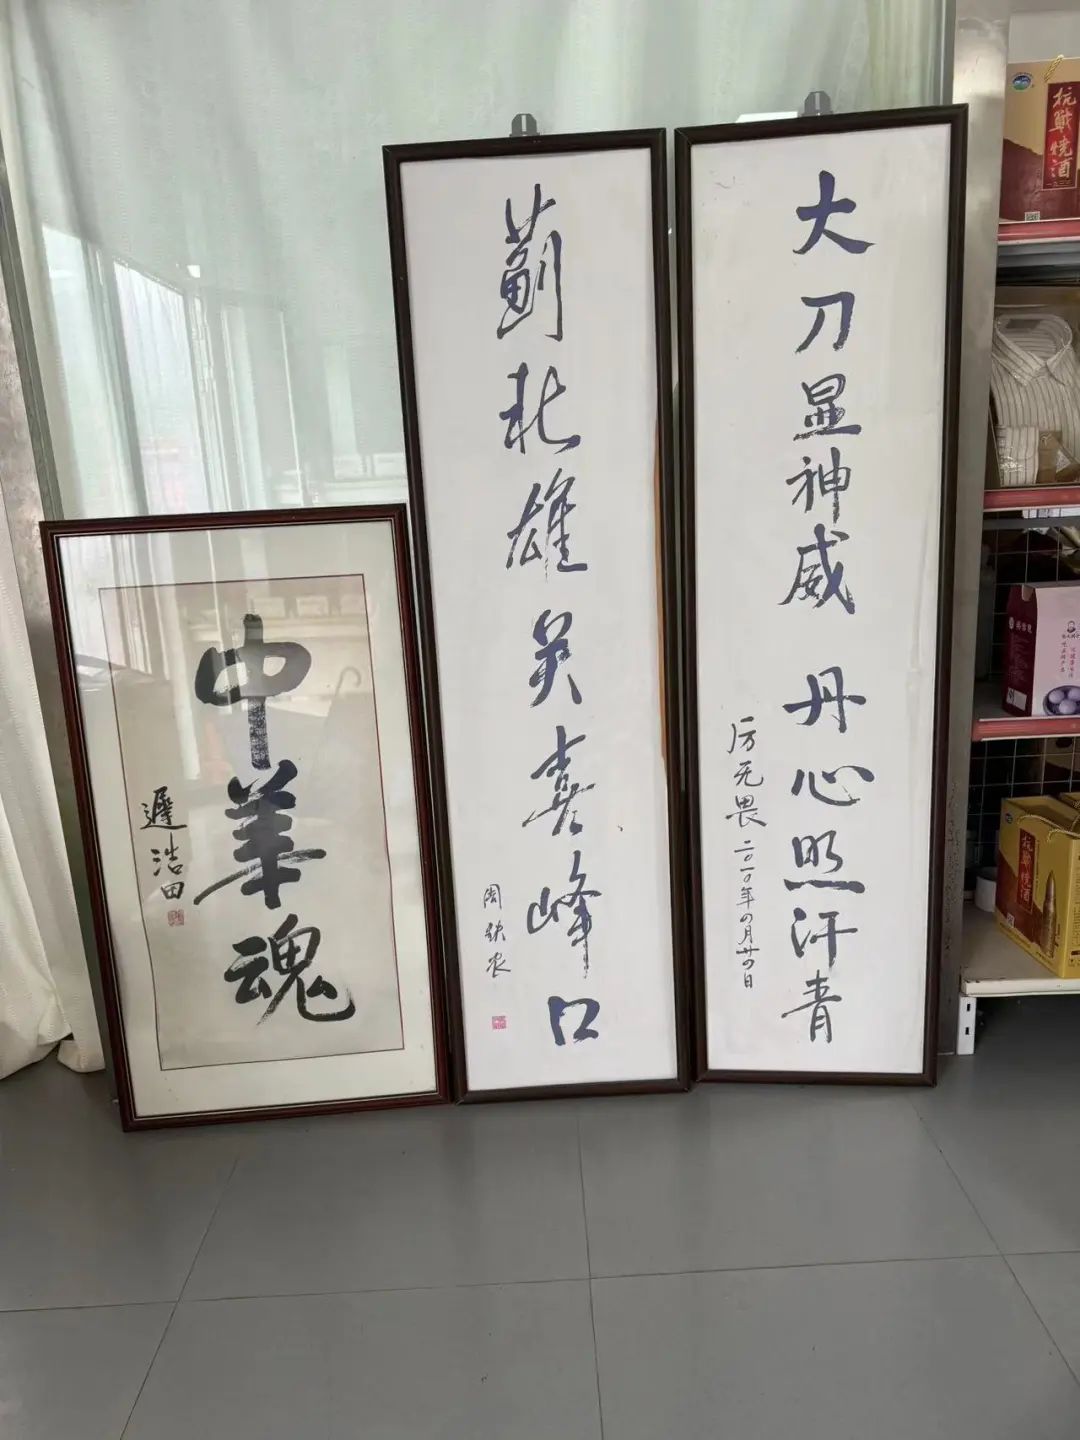 大刀显神威 丹心照汗青
厉无畏 二〇一〇年四月廿四日
蓟北雄英喜峰口
周铁农
中华魂
迟浩田
抗戰燒酒
抗戰燒酒